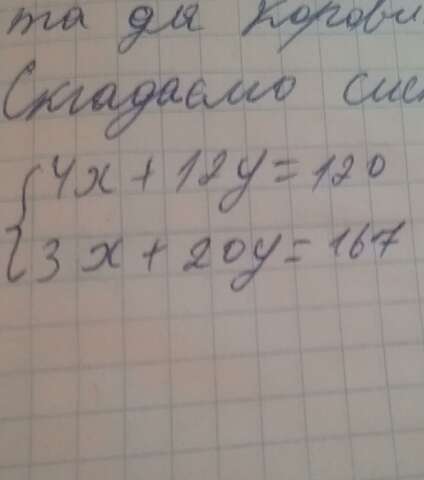 та для корови
Складаємо сис
{4x + 12y = 120
3x + 20y = 167